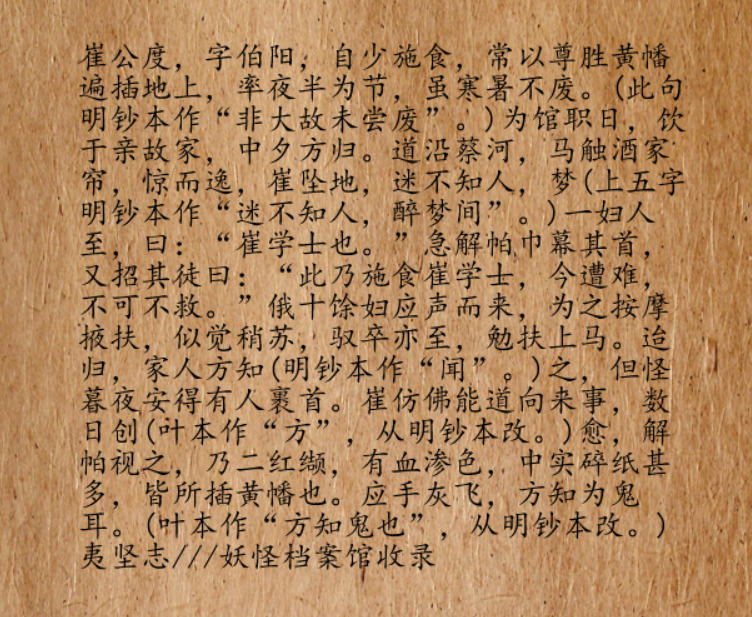 崔公度，字伯阳，自少施食，常以尊胜黄幡
遍插地上，率夜半为节，虽寒暑不废。(此句
明钞本作“非大故未尝废”。)为馆职日，饮
于亲故家，中夕方归。道沿蔡河，马触酒家
帘，惊而逸，崔坠地，迷不知人，梦(上五字
明钞本作“迷不知人，醉梦间”。)一妇人
至，曰：“崔学士也。”急解帕巾幕其首，
又招其徒曰：“此乃施食崔学士，今遭难，
不可不救。”俄十馀妇应声而来，为之按摩
掖扶，似觉稍苏，驭卒亦至，勉扶上马。迨
归，家人方知(明钞本作“闻”。)之，但怪
暮夜安得有人裹首。崔仿佛能道向来事，数
日创(叶本作“方”，从明钞本改。)愈，解
帕视之，乃二红缬，有血渗色，中实碎纸甚
多，皆所插黄幡也。应手灰飞，方知为鬼
耳。(叶本作“方知鬼也”，从明钞本改。)
夷坚志///妖怪档案馆收录